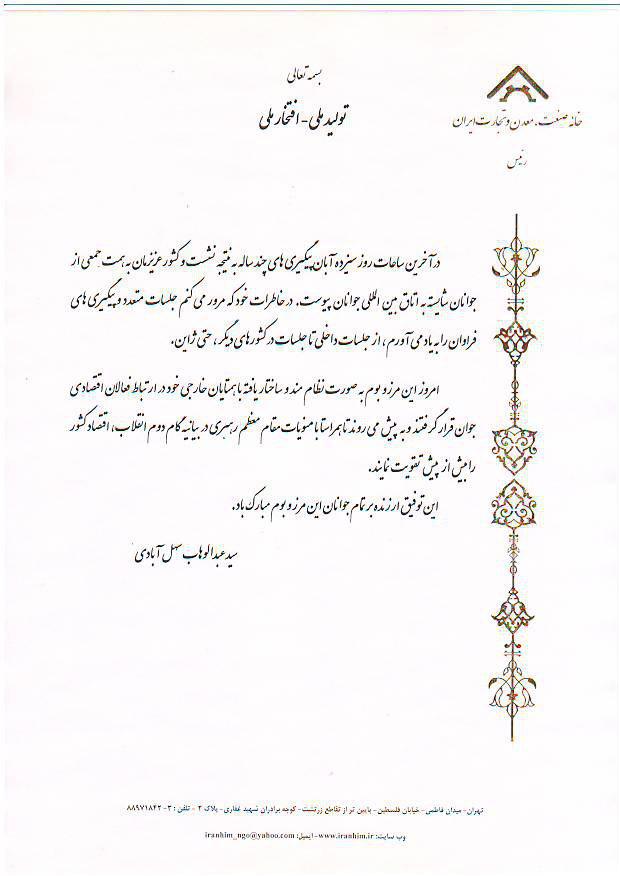 بسمه تعالی
تولید ملی - افتخار ملی
خانه صنعت، معدن و تجارت ایران
رئیس
در آخرین ساعات روز سیزده آبان پیگیری های چند ساله به نتیجه نشست و کشور عزیزمان به همت جمعی از
جوانان شایسته به اتاق بین المللی جوانان پیوست. در خاطرات خود که مرور می کنم جلسات متعدد و پیگیری های
فراوان را به یاد می آورم، از جلسات داخلی تا جلسات در کشورهای دیگر، حتی ژاپن.
امروز این مرز و بوم به صورت نظام مند و ساختار یافته با همتایان خارجی خود در ارتباط فعالان اقتصادی
جوان قرار گرفتند و به پیش می روند تا همراستا با منویات مقام معظم رهبری در بیانیه گام دوم انقلاب، اقتصاد کشور
را بیش از پیش تقویت نمایند.
این توفیق ارزنده بر تمام جوانان این مرز و بوم مبارک باد.
سید عبدالوهاب سهل آبادی
تهران- میدان فاطمی- خیابان فلسطین- پایین تر از تقاطع زرتشت- کوچه برادران شهید غفاری- پلاک ۲ - تلفن : ۳- ۸۸۹۷۱۸۴۲
وب سایت: www.iranhim.ir- ایمیل: iranhim_ngo@yahoo.com